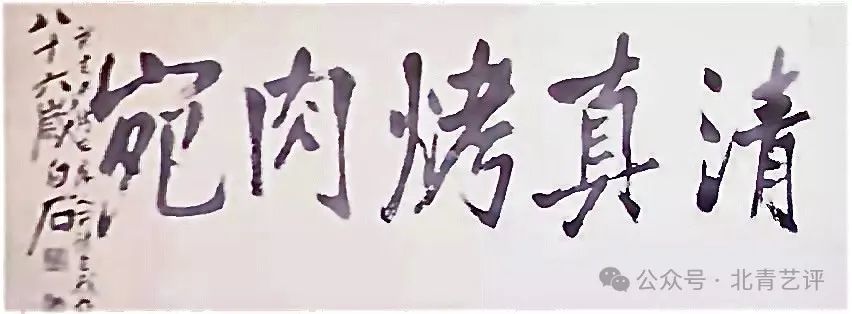 清真烤肉宛
八十六歲白石
公众号·北青艺评